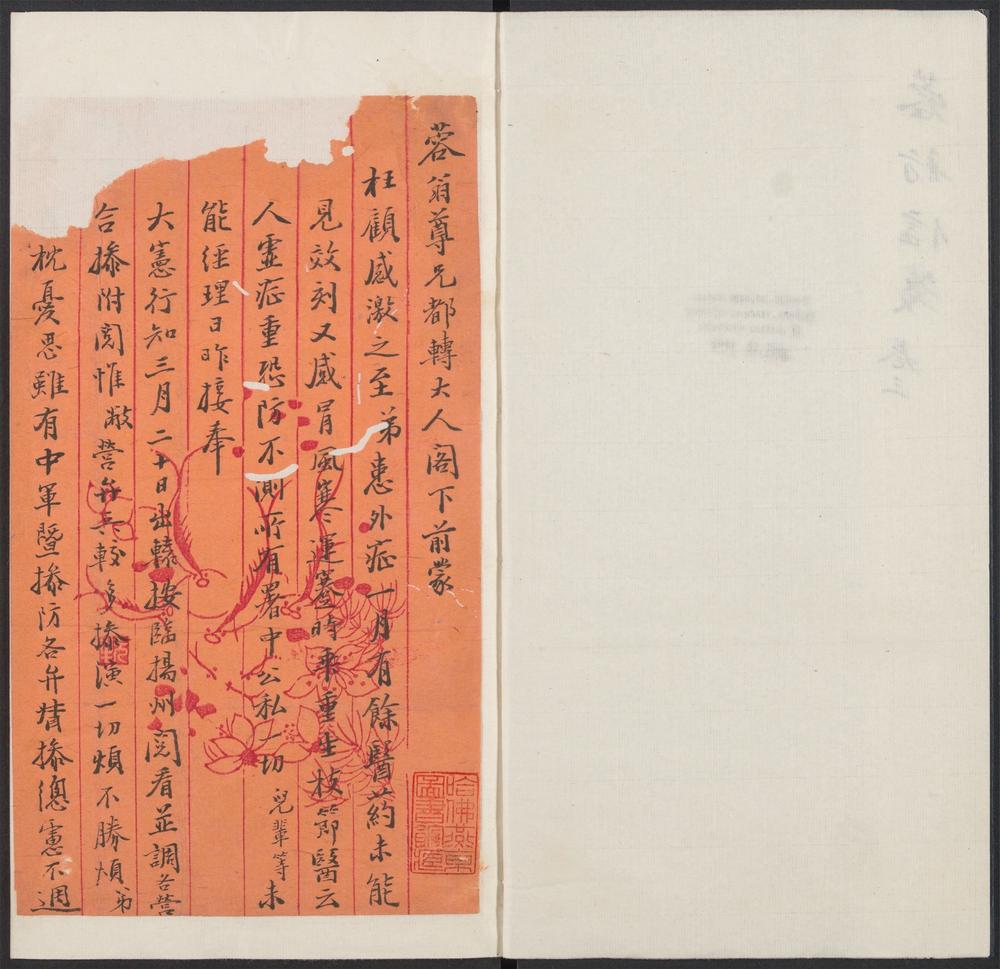 蓉翁尊兄都轉大人閣下前蒙
枉顧感激之至弟患外症一月有餘醫葯未能
見效刻又感冒風寒運蹇時乖重生枝節醫云
人虛症重恐防不測所有署中公私一切兒輩等未
能經理日昨接奉
大憲行知三月二十日出轅按臨揚州閱看並調各營
合掺附閱惟敝營弁兵較多掺演一切煩不勝煩弟
枕憂思雖有中軍暨掺防各弁幫掺總慮不週
哈佛燕京圖書館藏